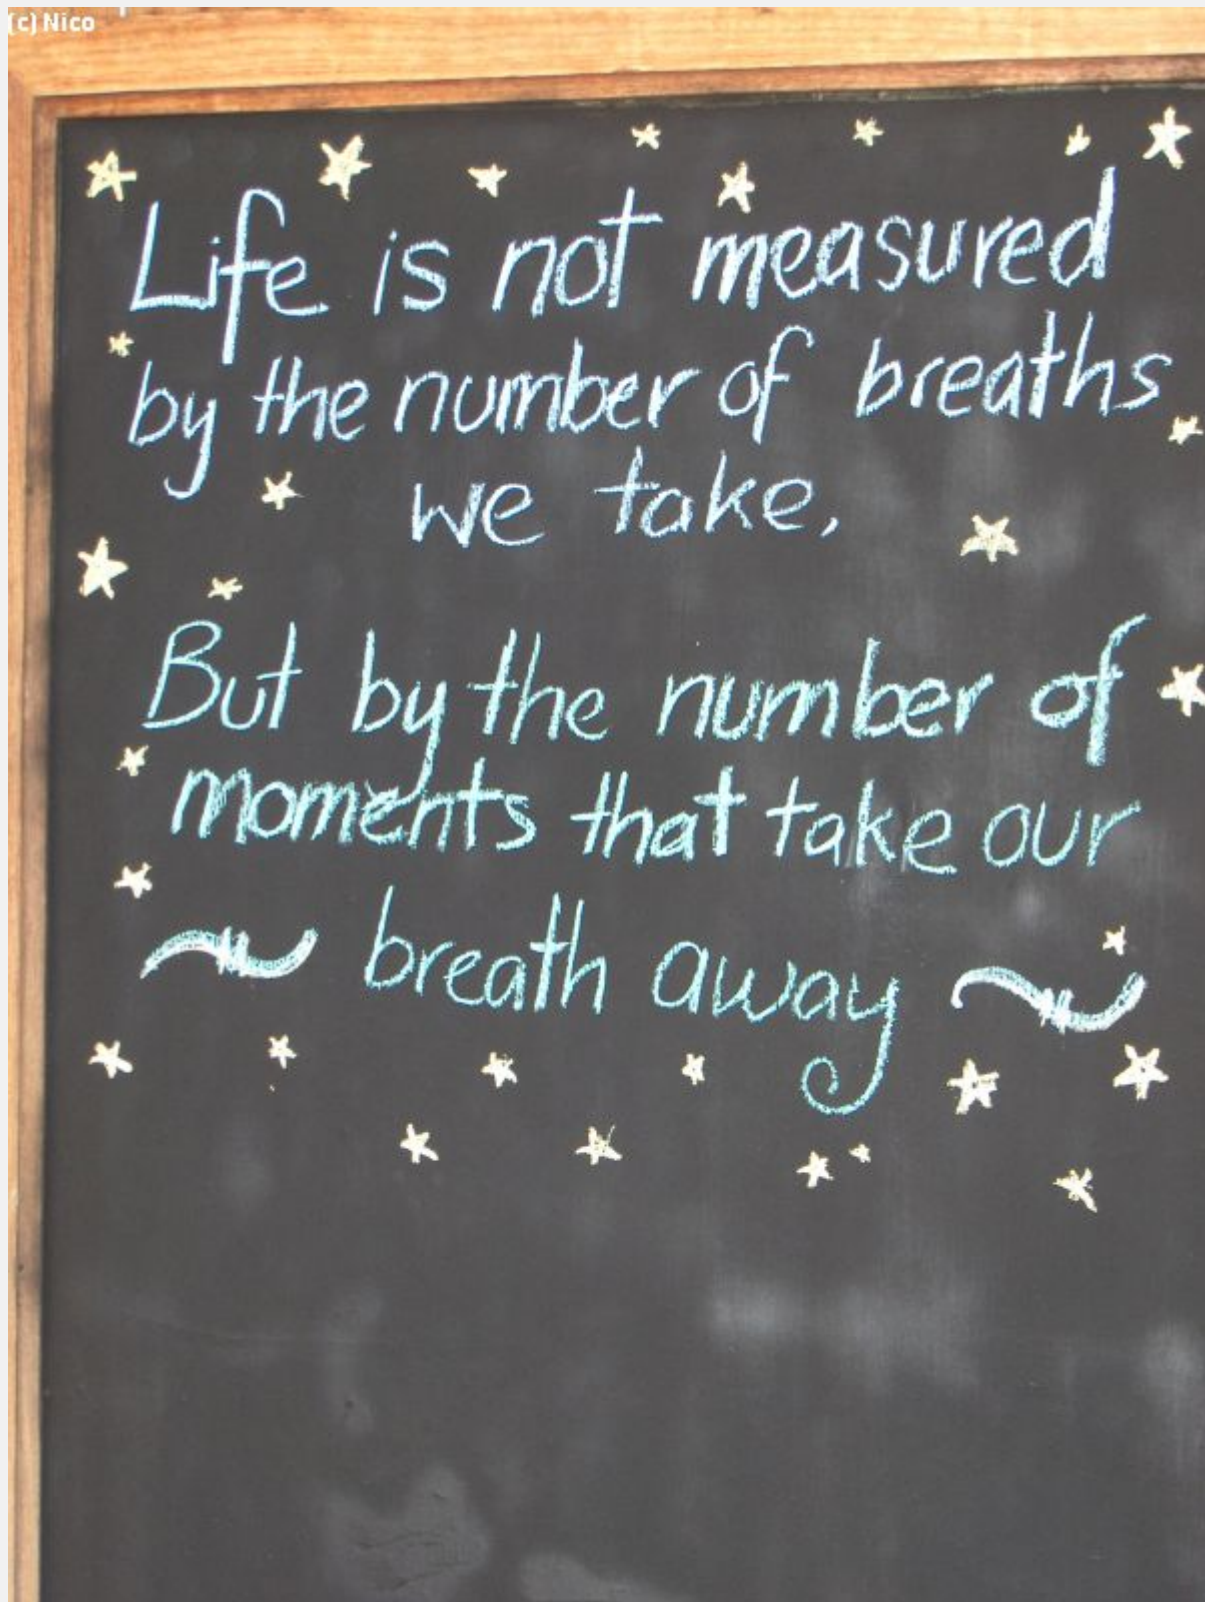 (c) Nico
Life is not measured
by the number of breaths
we take,
But by the number of
moments that take our
breath away